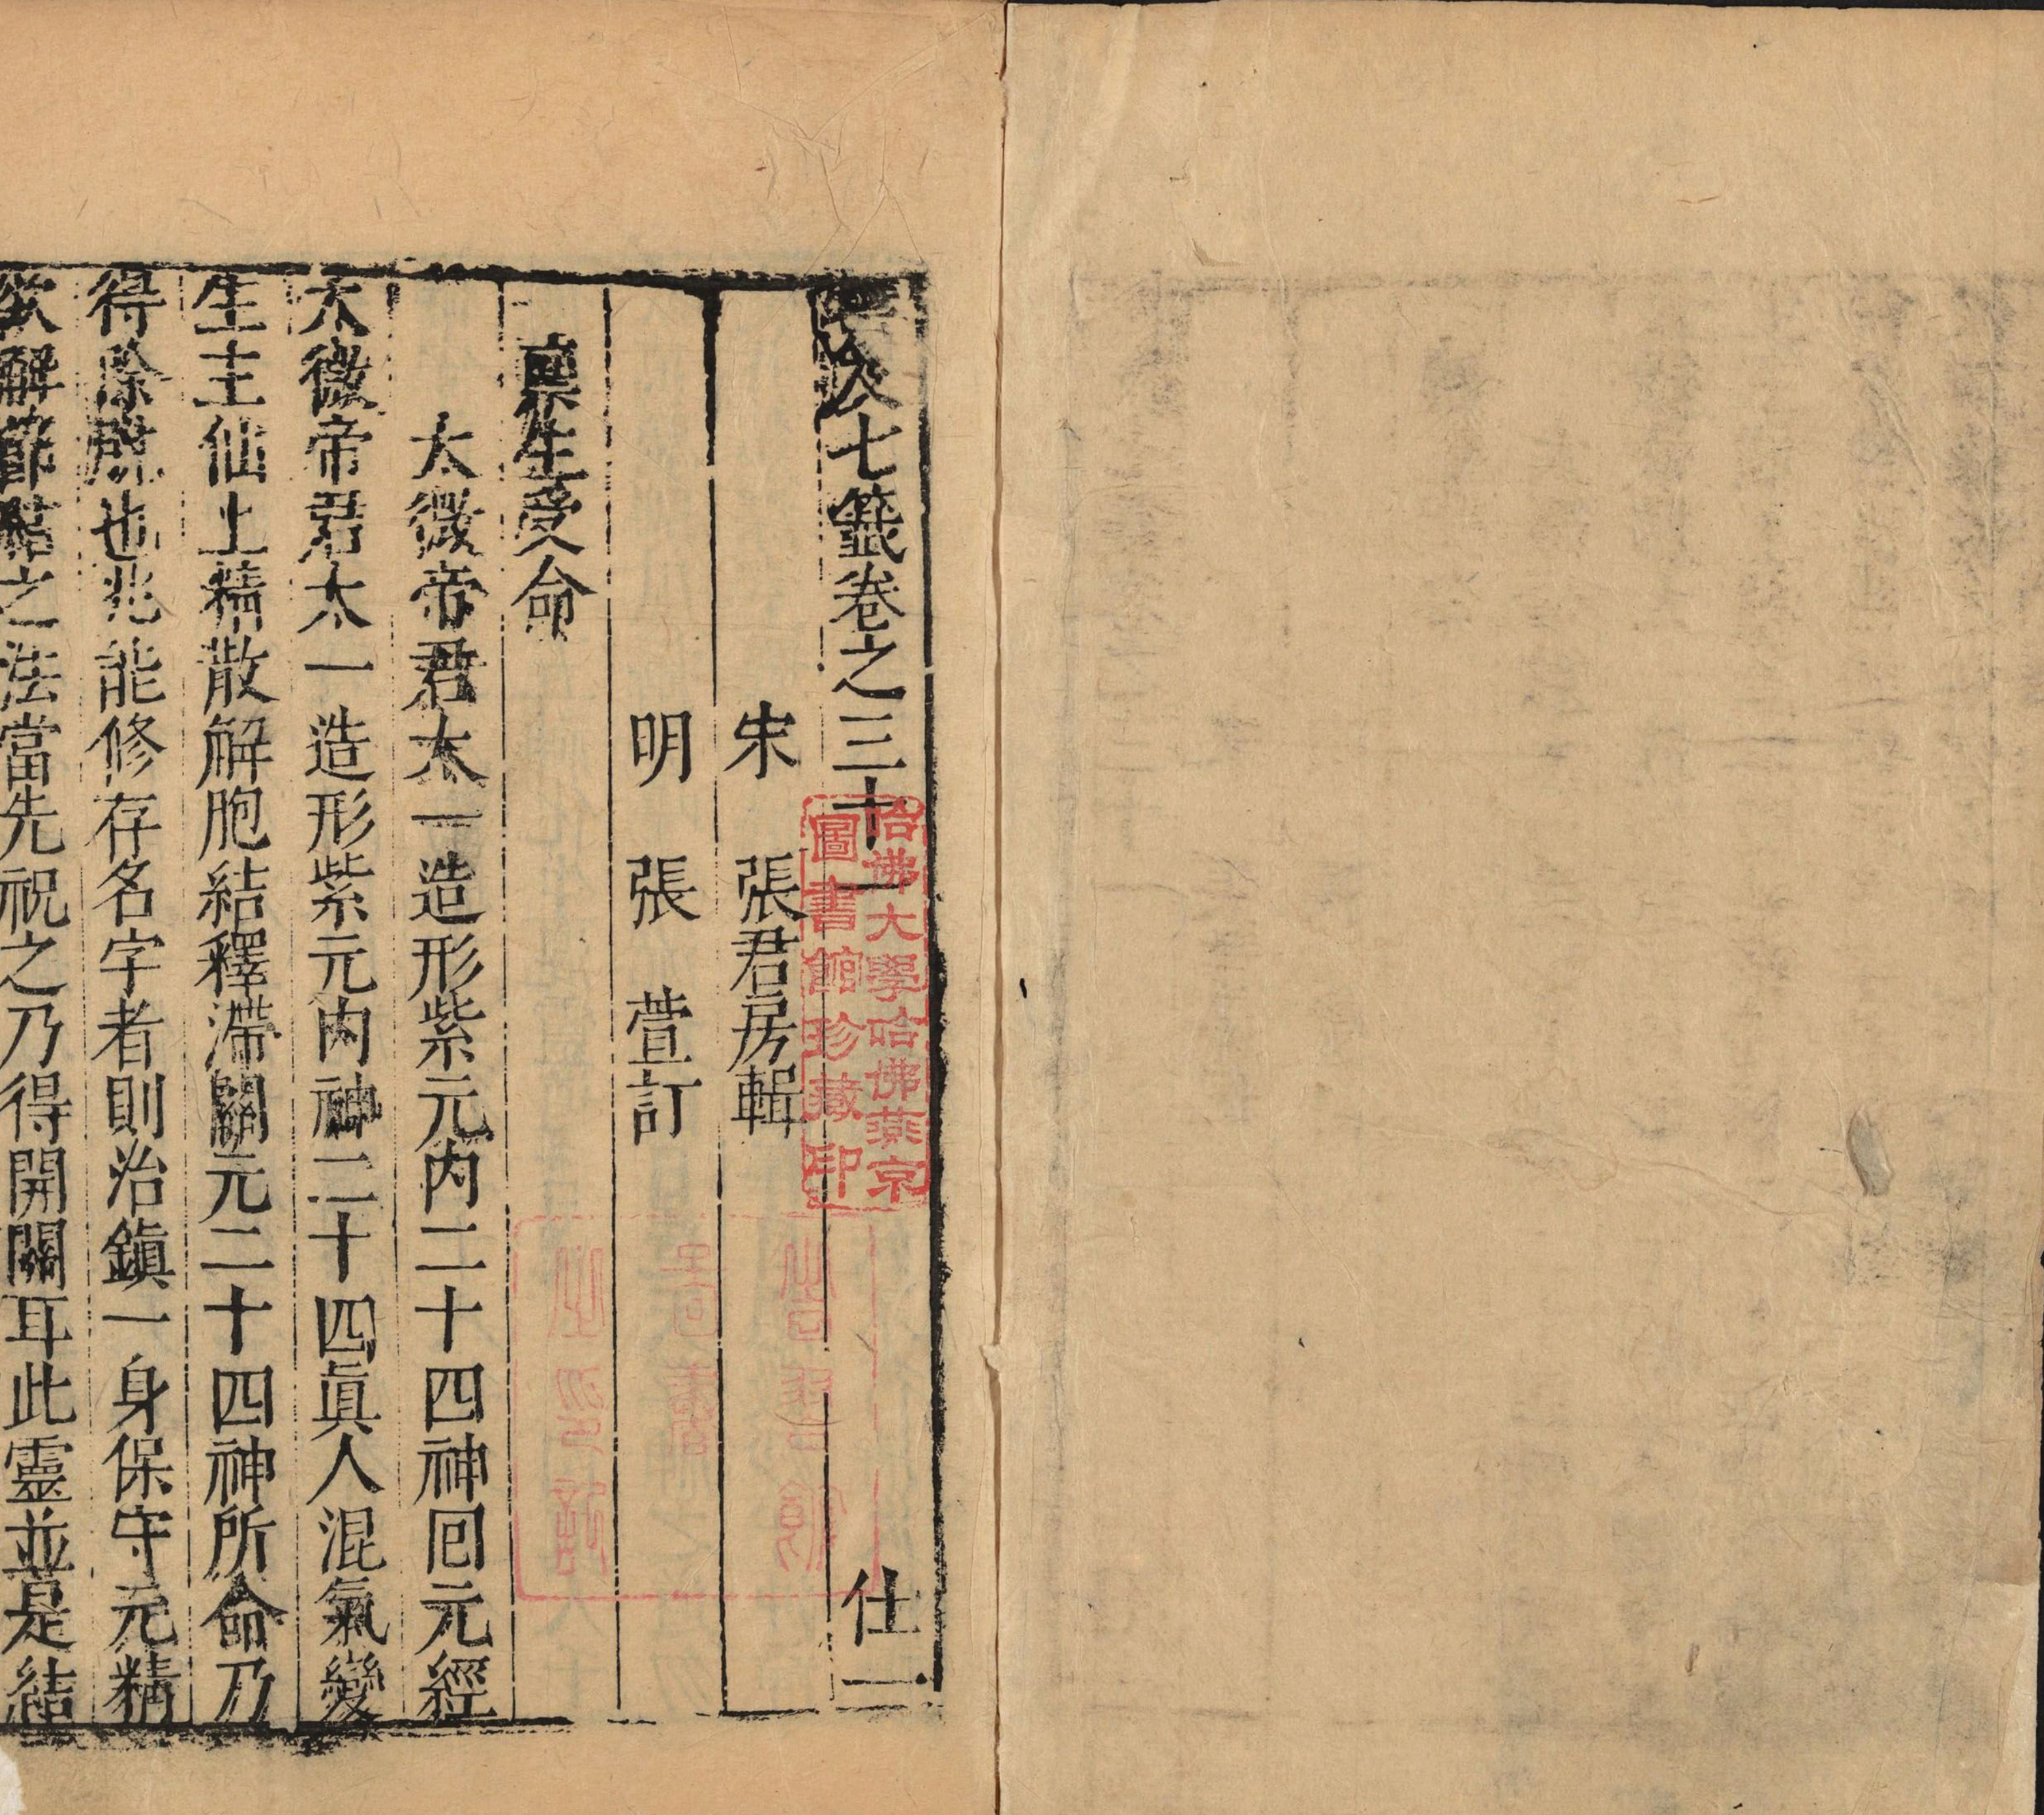 雲笈七籤卷之三十一 仕一
宋 張君房輯
明 張 萱訂
稟生受命
太微帝君太一造形紫元内二十四神回元經
太微帝君太一造形紫元内神二十四眞人混氣變
生主仙上精散解胞結釋滯關元二十四神所命乃
得除 也兆能修存名字者則治鎮一身保守元精
欲解節結之法當先祝之乃得開關耳此靈並是結
哈佛大學哈佛燕京
圖書館珍藏印